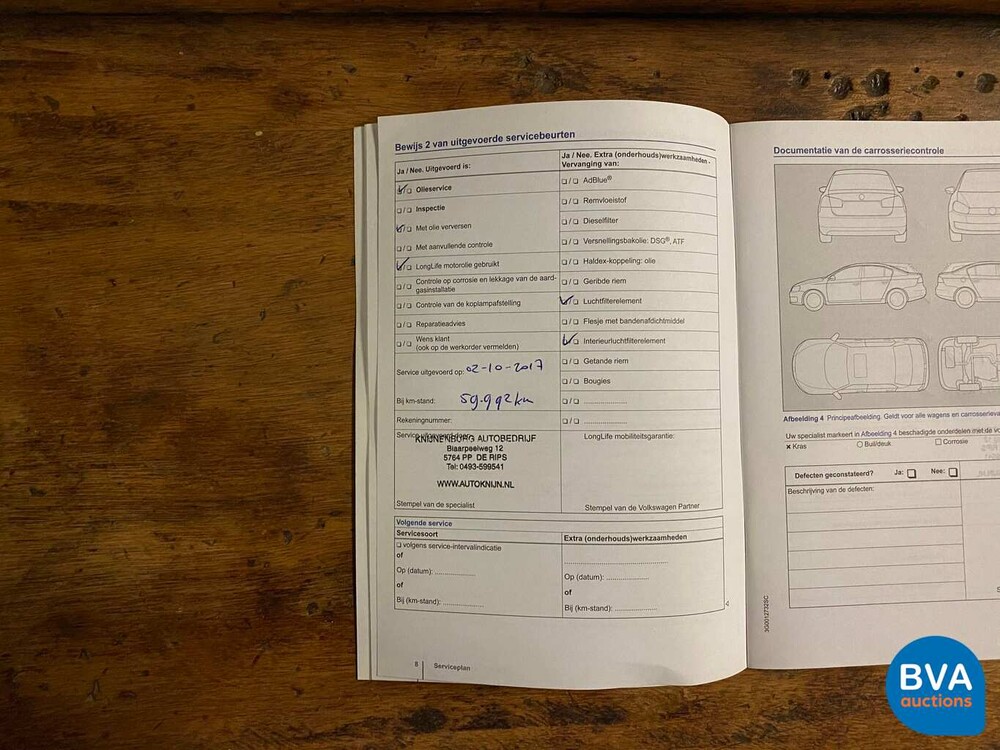 Bewijs 2 van uitgevoerde servicebeurten
Ja / Nee. Uitgevoerd is:
☑/☐ Olieservice
☐/☐ Inspectie
☑/☐ Met olie verversen
☐/☐ Met aanvullende controle
☑/☐ LongLife motorolie gebruikt
☐/☐ Controle op corrosie en lekkage van de aard-
gasinstallatie
☐/☐ Controle van de koplampafstelling
☐/☐ Reparatieadvies
☐/☐ Wens klant
(ook op de werkorder vermelden)
Service uitgevoerd op: 02-10-2017
Bij km-stand: 59.992km
Rekeningnummer:
KNIJNENBURG AUTOBEDRIJF
Blaarpeelweg 12
5764 PP DE RIPS
Tel: 0493-599541
WWW.AUTOKNIJN.NL
Stempel van de specialist
Ja / Nee. Extra (onderhouds)werkzaamheden -
Vervanging van:
☐/☐ AdBlue®
☐/☐ Remvloeistof
☐/☐ Dieselfilter
☐/☐ Versnellingsbakolie: DSG®, ATF
☐/☐ Haldex-koppeling: olie
☐/☐ Geribde riem
☑/☐ Luchtfilterelement
☐/☐ Flesje met bandenafdichtmiddel
☑/☐ Interieurluchtfilterelement
☐/☐ Getande riem
☐/☐ Bougies
☐/☐ ......................
☐/☐ ......................
LongLife mobiliteitsgarantie:
Stempel van de Volkswagen Partner
Volgende service
Servicesoort
☐ volgens service-intervalindicatie
of
Op (datum): ....................
of
Bij (km-stand): ....................
Extra (onderhouds)werkzaamheden
....................
Op (datum): ....................
of
Bij (km-stand): ....................
8 Serviceplan
Documentatie van de carrosseriecontrole
Afbeelding 4 Principeafbeelding. Geldt voor alle wagens en
Uw specialist markeert in Afbeelding 4 beschadigde onderdelen met de
× Kras ○ Buil/deuk ☐ Corrosie
Defecten geconstateerd? Ja: ☐ Nee: ☐
Beschrijving van de defecten:
3G0012732SC
BVA
auctions